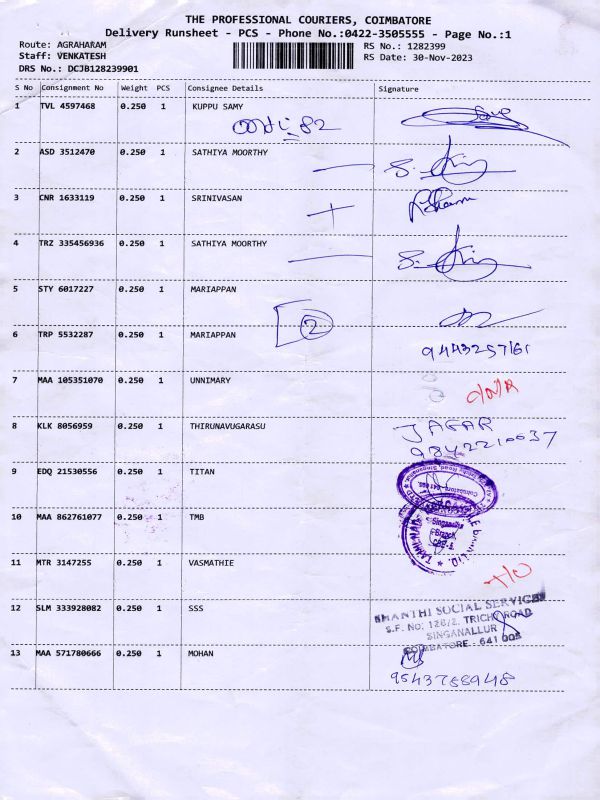 THE PROFESSIONAL COURIERS, COIMBATORE
Delivery Runsheet - PCS - Phone No.:0422-3505555 - Page No.:1
Route: AGRAHARAM
RS No.: 1282399
Staff: VENKATESH
RS Date: 30-Nov-2023
DRS No.: DCJB128239901
S No Consignment No Weight PCS Consignee Details Signature
1 TVL 4597468 0.250 1 KUPPU SAMY
82
2 ASD 3512470 0.250 1 SATHIYA MOORTHY
3 CNR 1633119 0.250 1 SRINIVASAN
4 TRZ 335456936 0.250 1 SATHIYA MOORTHY
5 STY 6017227 0.250 1 MARIAPPAN
2
6 TRP 5532287 0.250 1 MARIAPPAN 9443257161
7 MAA 105351070 0.250 1 UNNIMARY
8 KLK 8056959 0.250 1 THIRUNAVUGARASU JAFAR
9842210037
9 EDQ 21530556 0.250 1 TITAN
10 MAA 862761077 0.250 1 TMB
Singanallur
Branch
11 MTR 3147255 0.250 1 VASMATHIE
12 SLM 333928082 0.250 1 SSS
SHANTHI SOCIAL SERVICES
S.F. NO: 128/2, TRICHY ROAD
SINGANALLUR
COIMBATORE - 641 005
13 MAA 571780666 0.250 1 MOHAN
9543758948